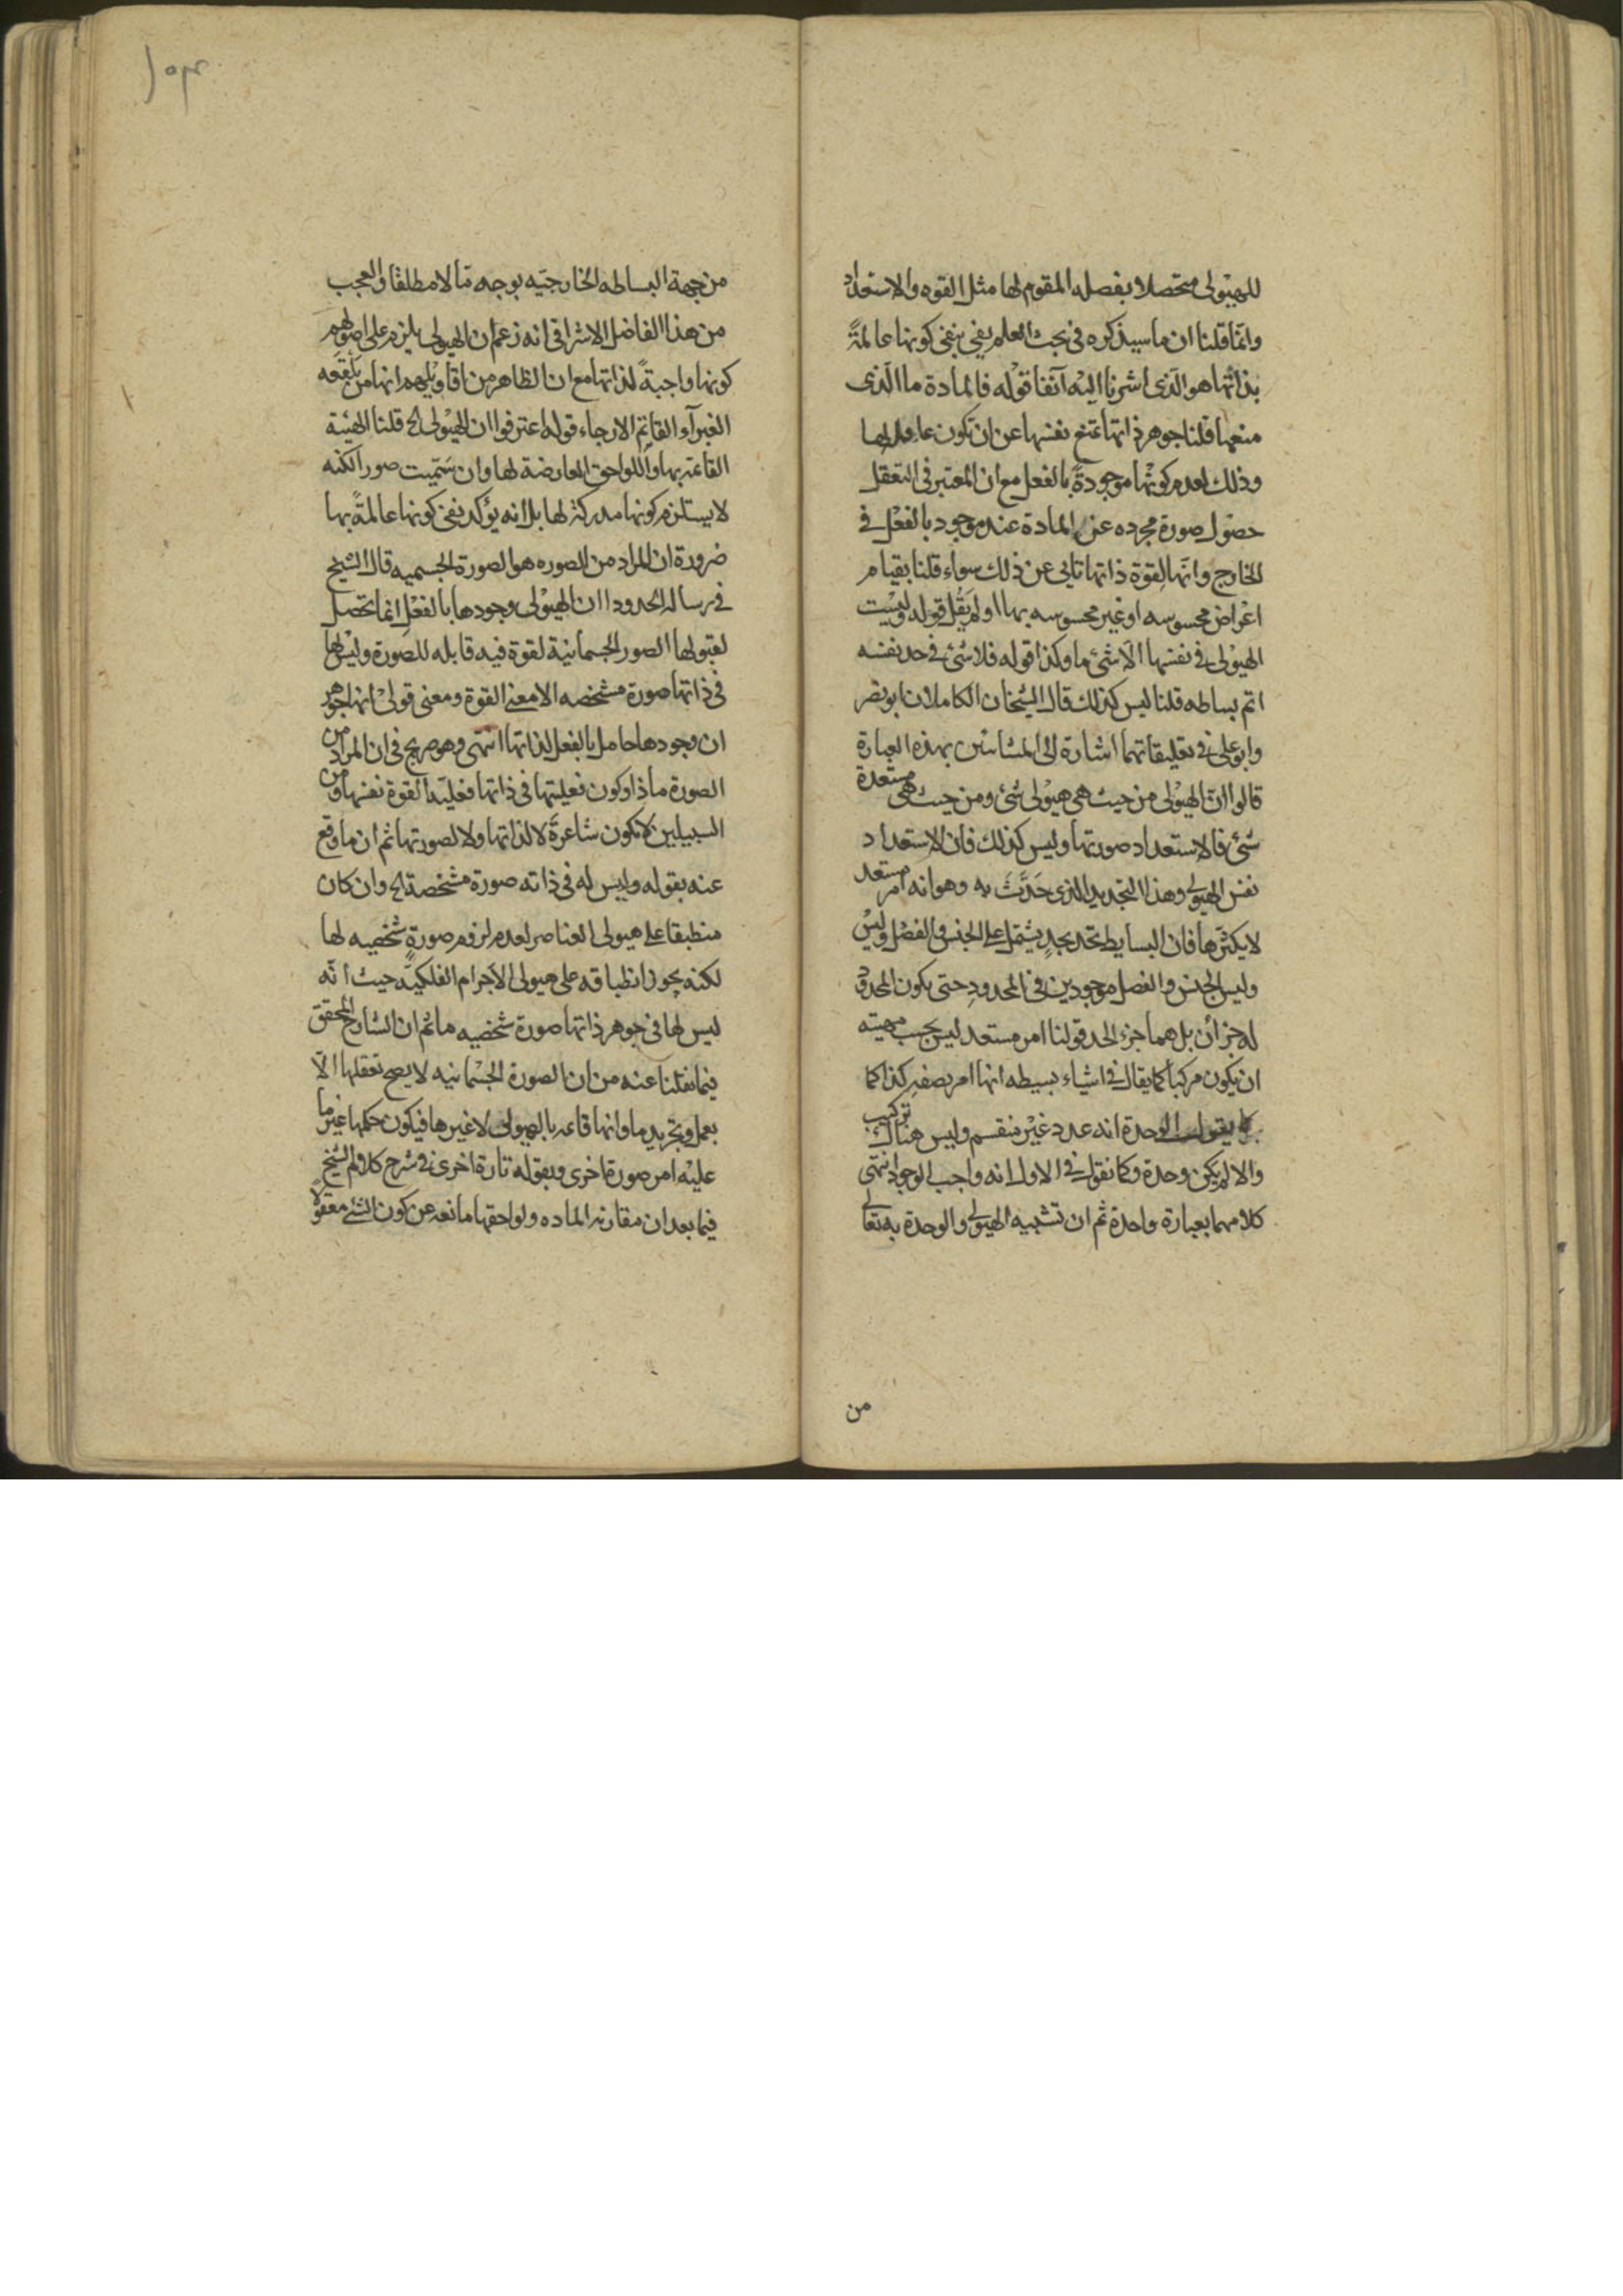 للهيولى متحصلا بفصله المقوم لها مثل القوه والاستعداد
وانما قلنا ان ما سيذكره فى بحث العلم يفى بنفى كونها عالمةً
بذاتها هو الذى اشرنا اليه آنفا قوله فالمادة ما الذى
منعها قلنا جوهر ذاتها تمنع نفسها عن ان تكون عاقلا لها
وذلك لعدم كونها موجودةً بالفعل مع ان المعتبر فى التعقل
حصول صورة مجرده عن المادة عند موجود بالفعل فى
الخارج وانها لقوة ذاتها تابى عن ذلك سواء قلنا بقيام
اعراض محسوسه او غير محسوسه بها او لم يقُل قوله وليست
الهيولى فى نفسها الا شئ ما وكذا قوله فلا شئ فى حد نفسه
اتم بساطه قلنا ليس كذلك قال الشيخان الكاملان ابو نصر
وابو على فى تعليقاتهما اشارة الى المشائين بهذه العبارة
قالوا ان الهيولى من حيث هى هيولى شئ ومن حيث هى مستعدة
شئ فالاستعداد صورتها وليس كذلك فان الاستعداد
نفس الهيولى وهذا التحديد الذى حَدَّثَ به وهو انه امر مستعد
لا يكثرها فان البسايط تحد بحدٍ يشتمل على الجنس والفصل وليس
وليس الجنس والفصل موجودين فى المحدود حتى يكون المحدود
له جزأن بل هما جزء الحد قولنا امر مستعد ليس بحسب مهيته
ان يكون مركبا كما يقال فى اشياء بسيطه انها امر بصفه كذا كما
يقول الوحدة انه عدد غير منقسم وليس هناك تركيب
والا لم يكن وحدة وكما نقول فى الاول انه واجب الوجود انتهى
كلامهما بعبارة واحدة ثم ان تشبيه الهيولى والوحدة به تعالى
من
من جهة البساطه الخارجيّه بوجه مّا لا مطلقا والعجب
من هذا الفاضل الاشراقى انه زعم ان الهيولى يلزم على اصولهم
كونها واجبةً لذاتها مع ان الظاهر من اقاويلهم انها من بلقعه
الغبرآء القاتم الارجاء قوله اعترفوا ان الهيولى الخ قلنا الهيئة
القائمة بها واللواحق العارضة لها وان سَمّيت صورا لكنه
لا يستلزم كونها مدركة لها بل انه يؤكد نفى كونها عالمةً بها
ضرورة ان المراد من الصوره هو الصورة الجسميه قال الشيخ
فى رسالة الحدود ان الهيولى وجودها بالفعل انما تحصل
لقبولها الصور الجسمانية لقوة فيه قابله للصورة وليس لها
فى ذاتها صورة مشخصه الا معنى القوة ومعنى قولى انها جوهر
ان وجودها حاصل بالفعل لذاتها انتهى وهو صريح فى ان المراد من
الصورة ماذا وكون فعليتها فى ذاتها فعليّة القوة نفسها ومن
السبيلين لا تكون شاعرةً لا لذاتها ولا لصورتها ثم ان ما وقع
عنه بقوله وليس له فى ذاته صورة مشخصة الخ وان كان
منطبقا على هيولى العناصر لعدم لزوم صورةٍ شخصيه لها
لكنه يجوز انطباقه على هيولى الاجرام الفلكيّه حيث انّه
ليس لها فى جوهر ذاتها صورة شخصيه ما ثم ان الشارح المحقق
فيما نقلنا عنه من ان الصورة الجسمانيه لا يصح تعقلها الّا
بعمل وتجريد ما وانها قائمه بالهيولى لا غيرها فيكون حكمها غير ما
عليه امر صورة اخرى وبقوله تارة اخرى فى شرح كلام الشيخ
فيما بعد ان مقارنه الماده ولواحقها مانعه عن كون الشئ معقولًا